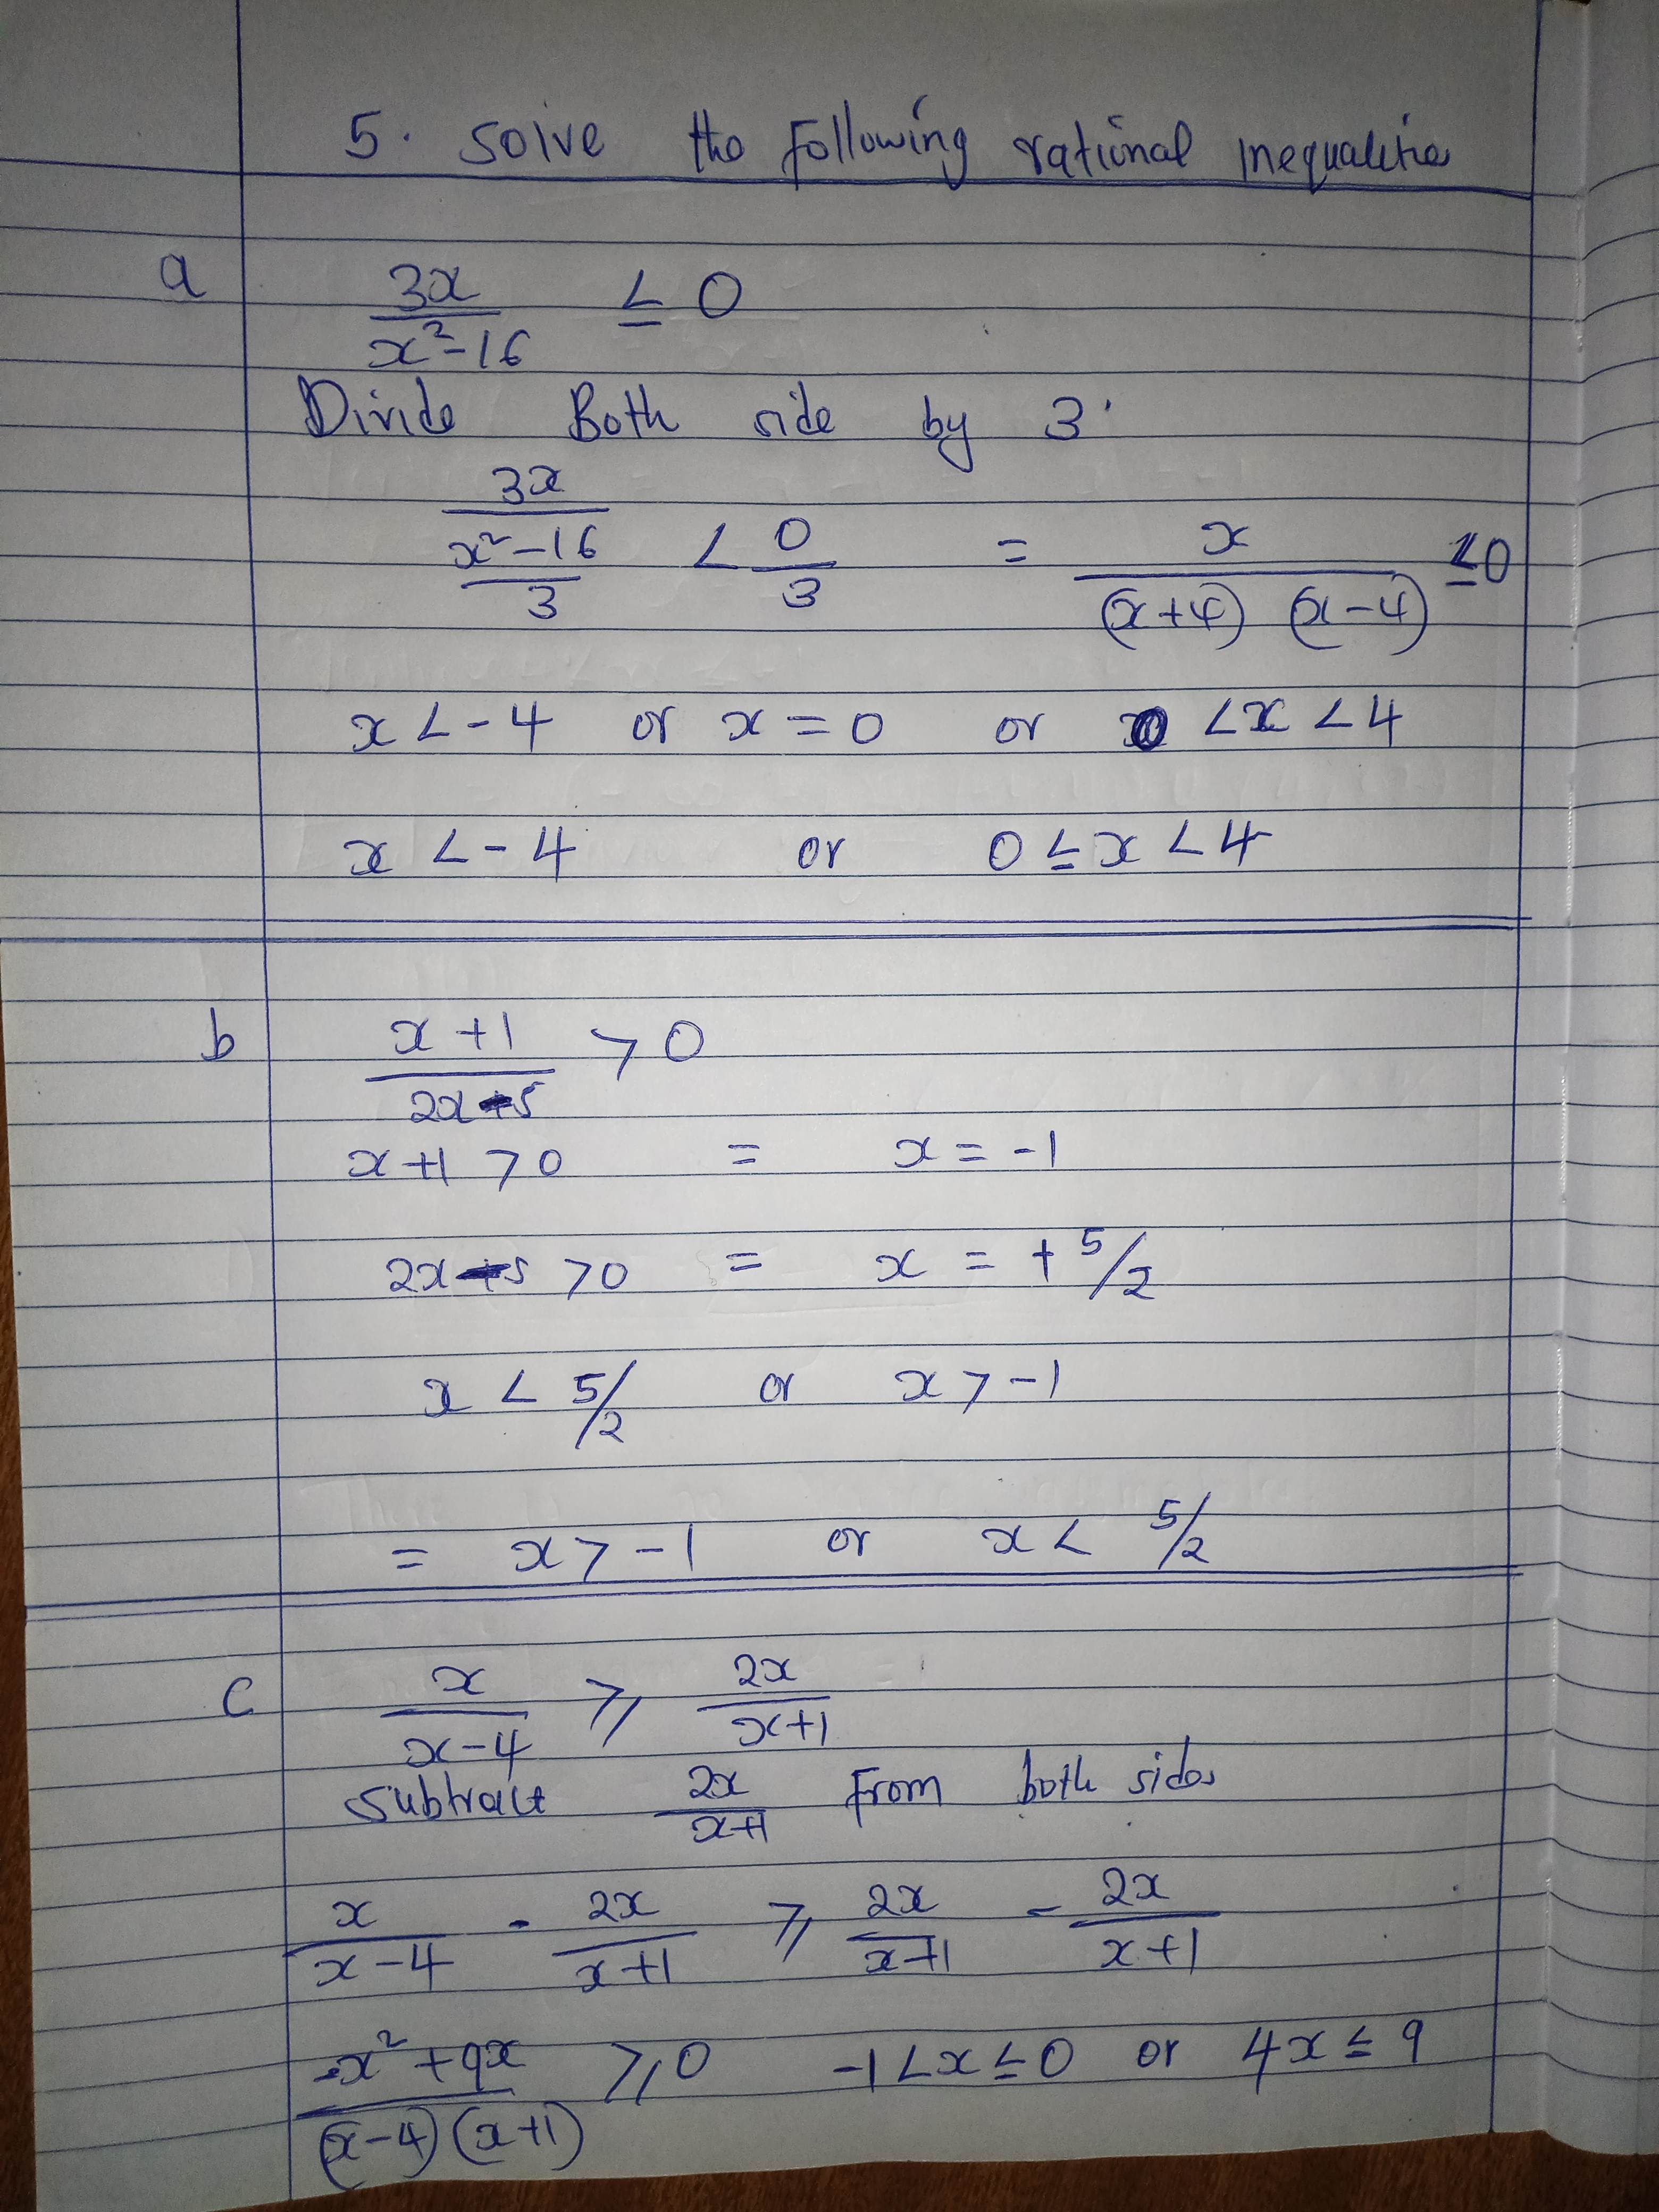 5. Solve the following rational inequalities
a 3x/x²-16 ≤ 0
Divide Both side by 3
3x/x²-16/3 < 0/3 = x/(x+4) (x-4) ≤0
x < -4 or x = 0 or 0 < x < 4
x < -4 or 0 ≤ x < 4
b x+1/2x-5 > 0
x+1 > 0 = x = -1
2x-5 > 0 = x = + 5/2
x < 5/2 or x > -1
= x > -1 or x < 5/2
c x/x-4 ⩾ 2x/x+1
Subtract 2x/x+1 from both sides
x/x-4 - 2x/x+1 ⩾ 2x/x+1 - 2x/x+1
-x²+9x/(x-4)(x+1) ⩾ 0 -1 < x ≤ 0 or 4x ≤ 9